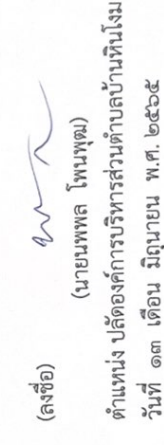 (ลงชื่อ)
(นายนพพล โพนพุฒ)
ตำแหน่ง ปลัดองค์การบริหารส่วนตำบลบ้านหินโงม
วันที่ ๑๓ เดือน มิถุนายน พ.ศ. ๒๕๖๕